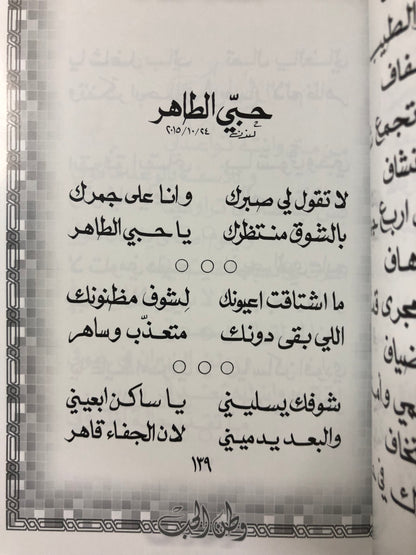 حبّي الطاهر
في لندن ٢٠١٥/١٠/٢٤
لا تقول لي صبرك وانا على جمرك
بالشوق منتظرك يا حبي الطاهر
ما اشتاقت اعيونك لشوف مظنونك
اللي بقى دونك متعذّب وساهر
شوفك يسليني يا ساكن ابعيني
والبعد يدميني لان الجفاء قاهر
١٣٩
وطن الحب
الطيب
تجمع